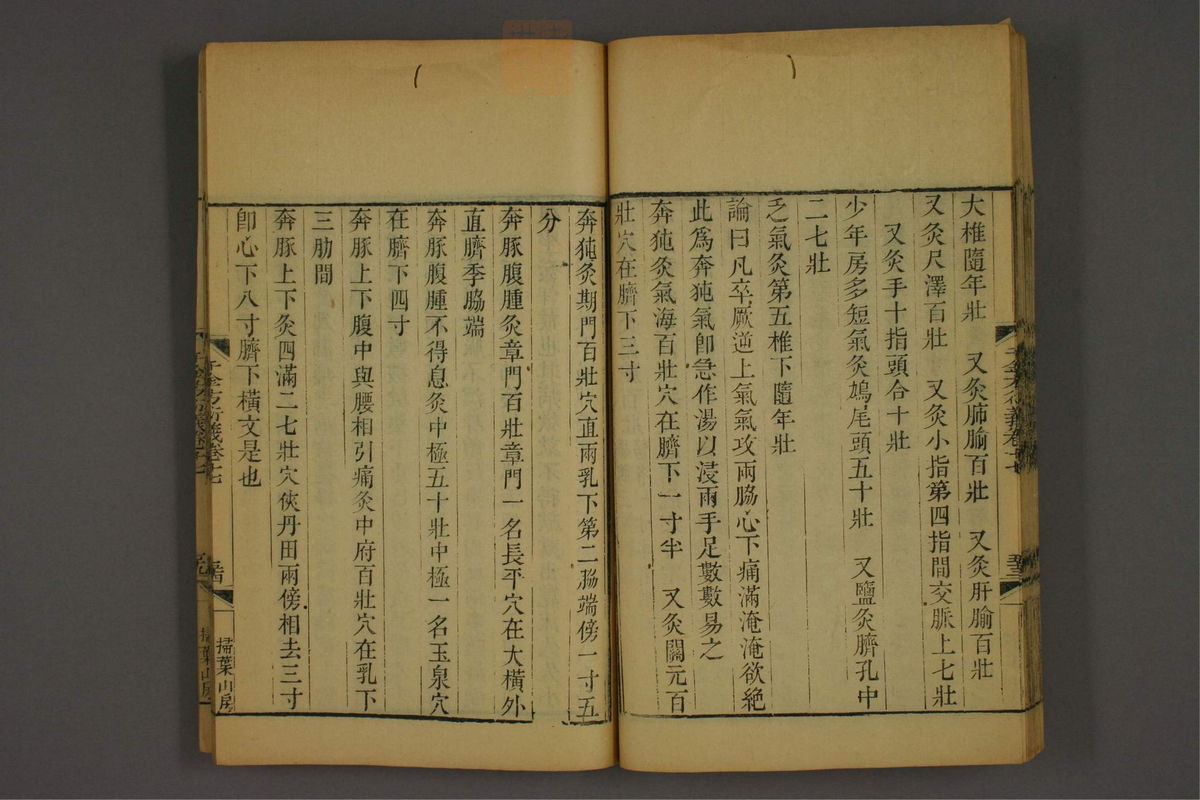 大椎隨年壯　又灸肺腧百壯　又灸肝腧百壯
又灸尺澤百壯　又灸小指第四指間交脈上七壯
又灸手十指頭合十壯
少年房多短氣灸鳩尾頭五十壯　又鹽灸臍孔中
二七壯
乏氣灸第五椎下隨年壯
論曰凡卒厥逆上氣氣攻兩脇心下痛滿淹淹欲絕
此爲奔㹠氣卽急作湯以浸兩手足數數易之
奔㹠灸氣海百壯穴在臍下一寸半　又灸關元百
壯穴在臍下三寸
奔㹠灸期門百壯穴直兩乳下第二脇端傍一寸五
分
奔豚腹腫灸章門百壯章門一名長平穴在大橫外
直臍季脇端
奔豚腹腫不得息灸中極五十壯中極一名玉泉穴
在臍下四寸
奔豚上下腹中與腰相引痛灸中府百壯穴在乳下
三肋間
奔豚上下灸四滿二七壯穴俠丹田兩傍相去三寸
卽心下八寸臍下橫文是也
千金方衍義卷十七
掃葉山房